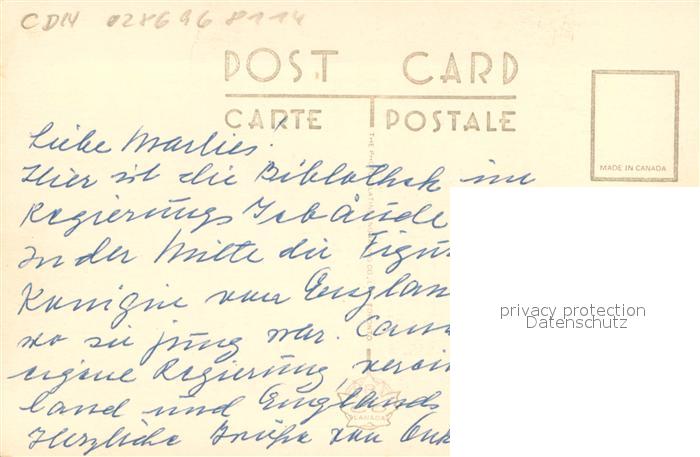 CDM 028696 8114
POST CARD
CARTE POSTALE
MADE IN CANADA
Liebe Marlies!
Hier ist die Bibliothek im
Regierungs Gebäude
In der Mitte die Figur
Königin von England
wo sie jung war.
eigene Regierung, verein
land und Englands
Herzliche Grüße von Onk
CANADA
privacy protection
Datenschutz